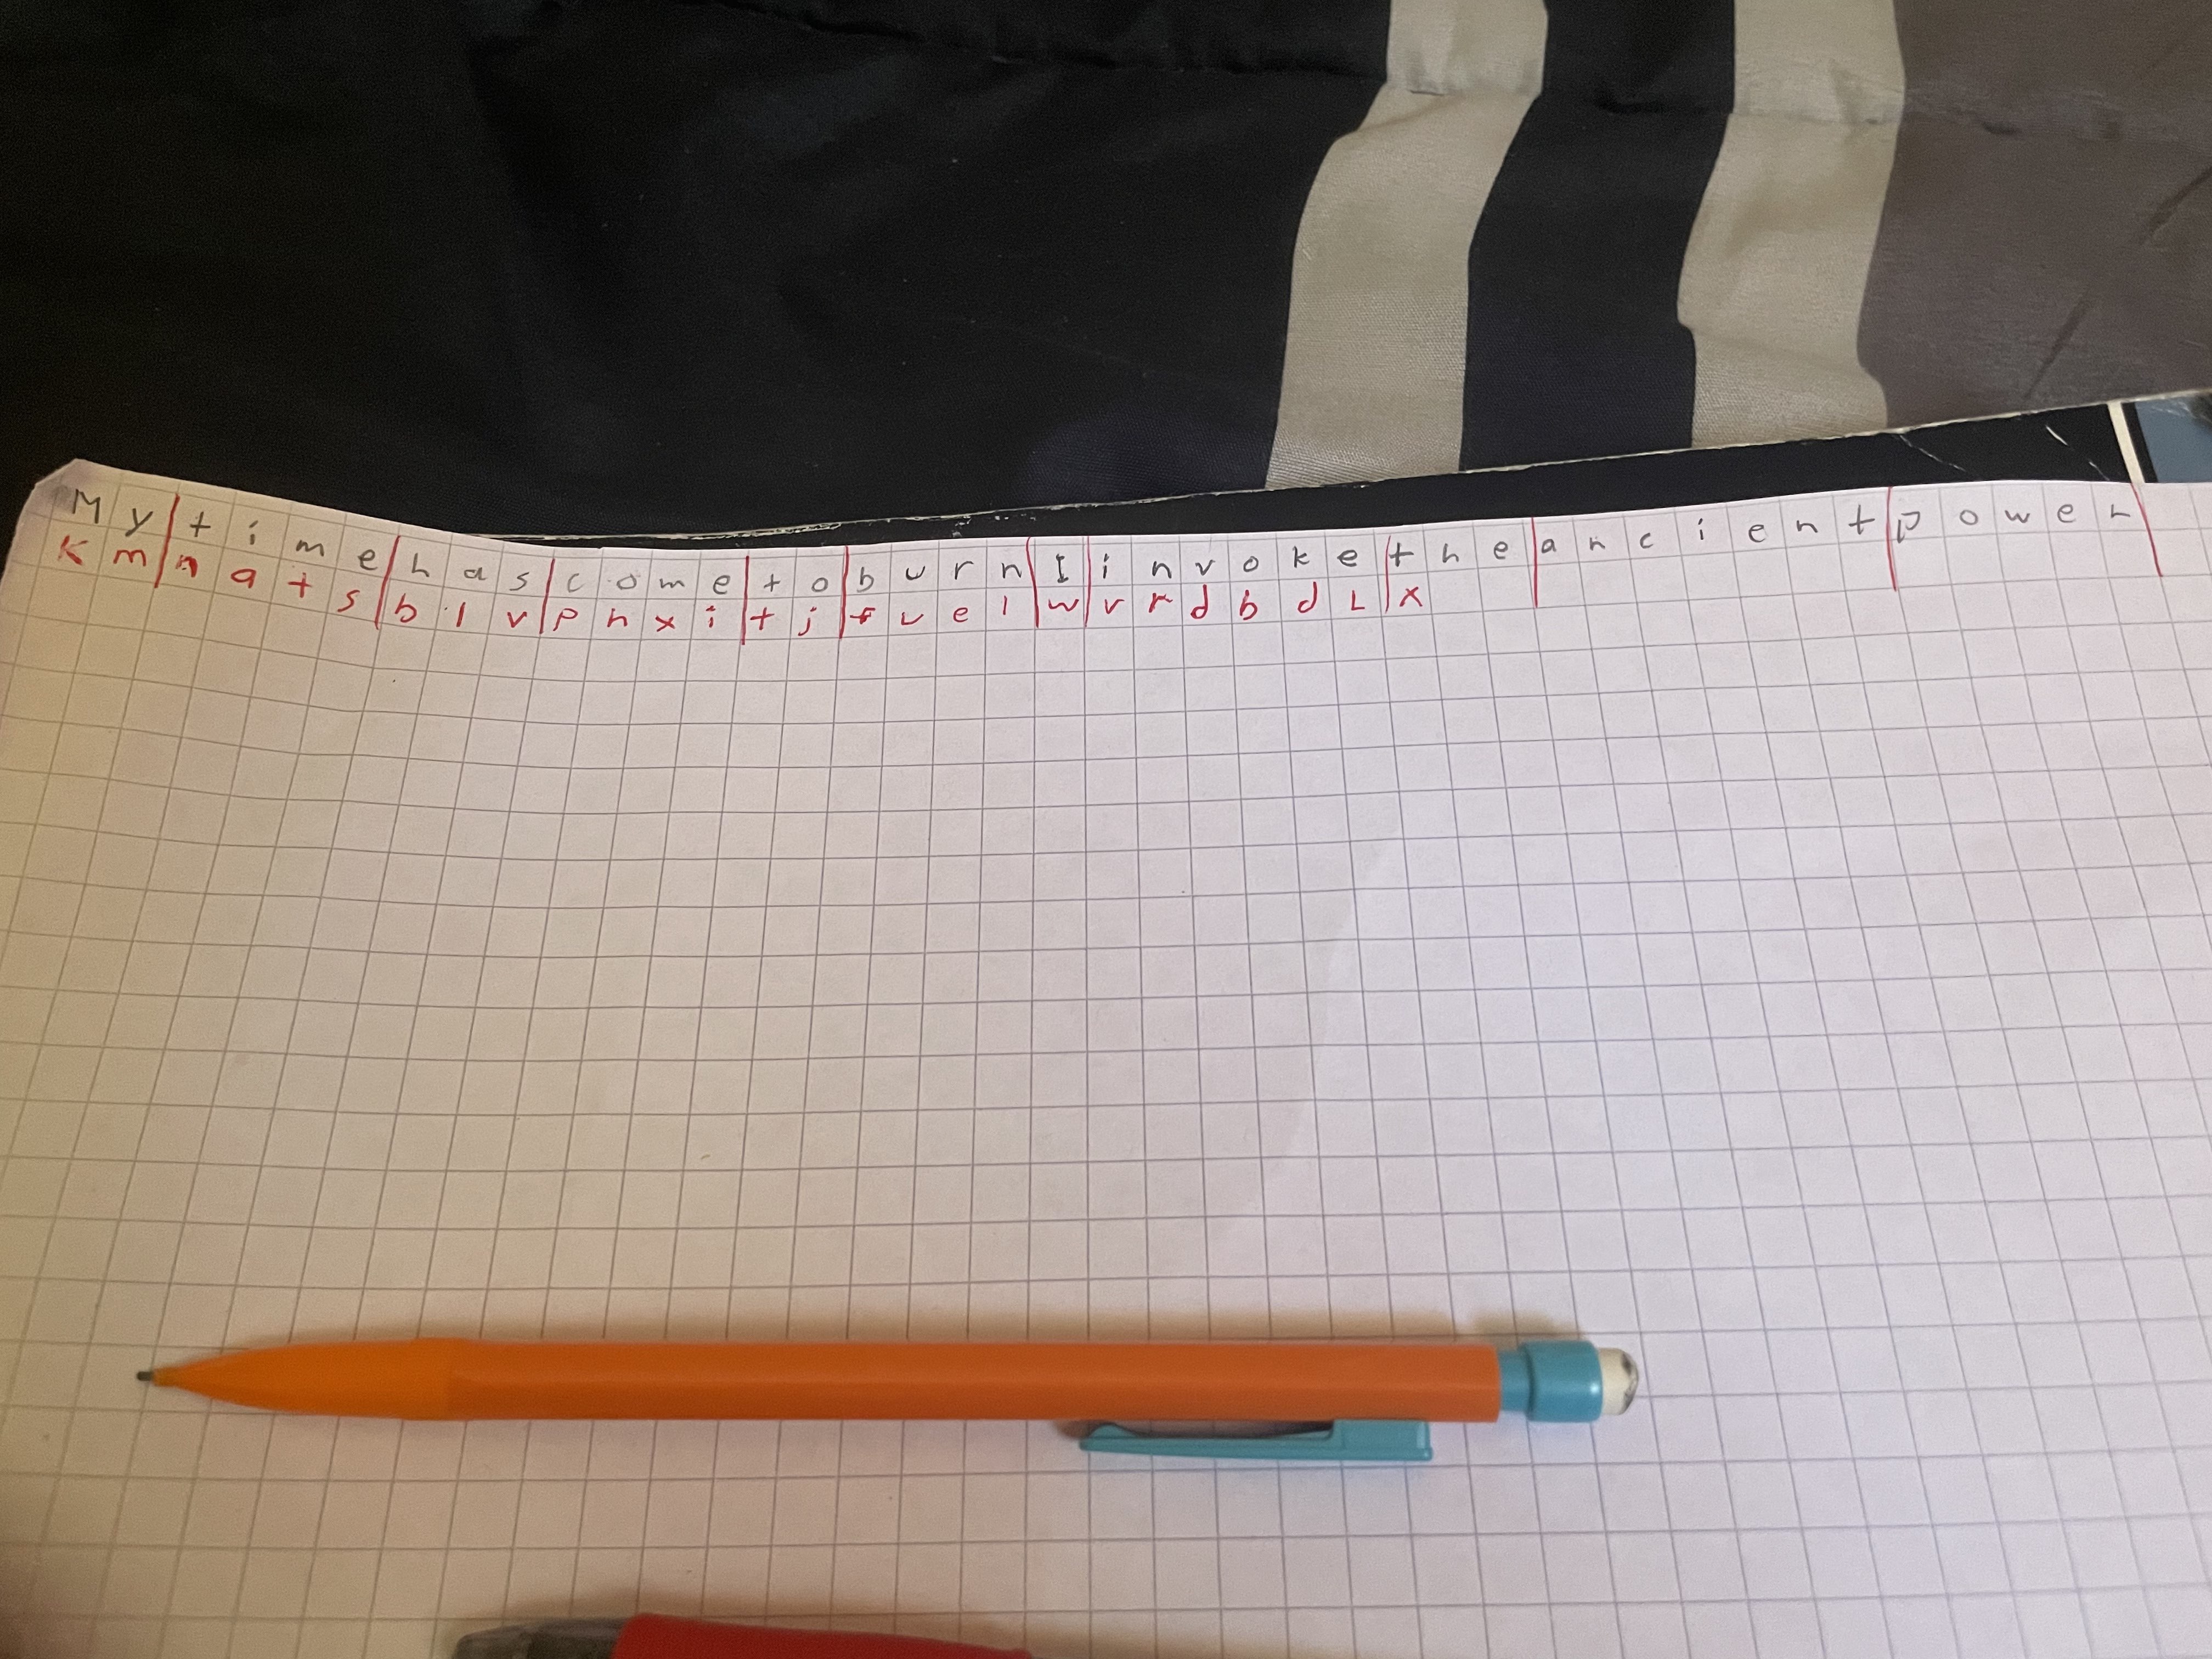 My|time|has|come|to|burn|I|invoke|the|ancient|power|
Km|nats|blv|pnxi|tj|fuel|w|vrdbdL|x